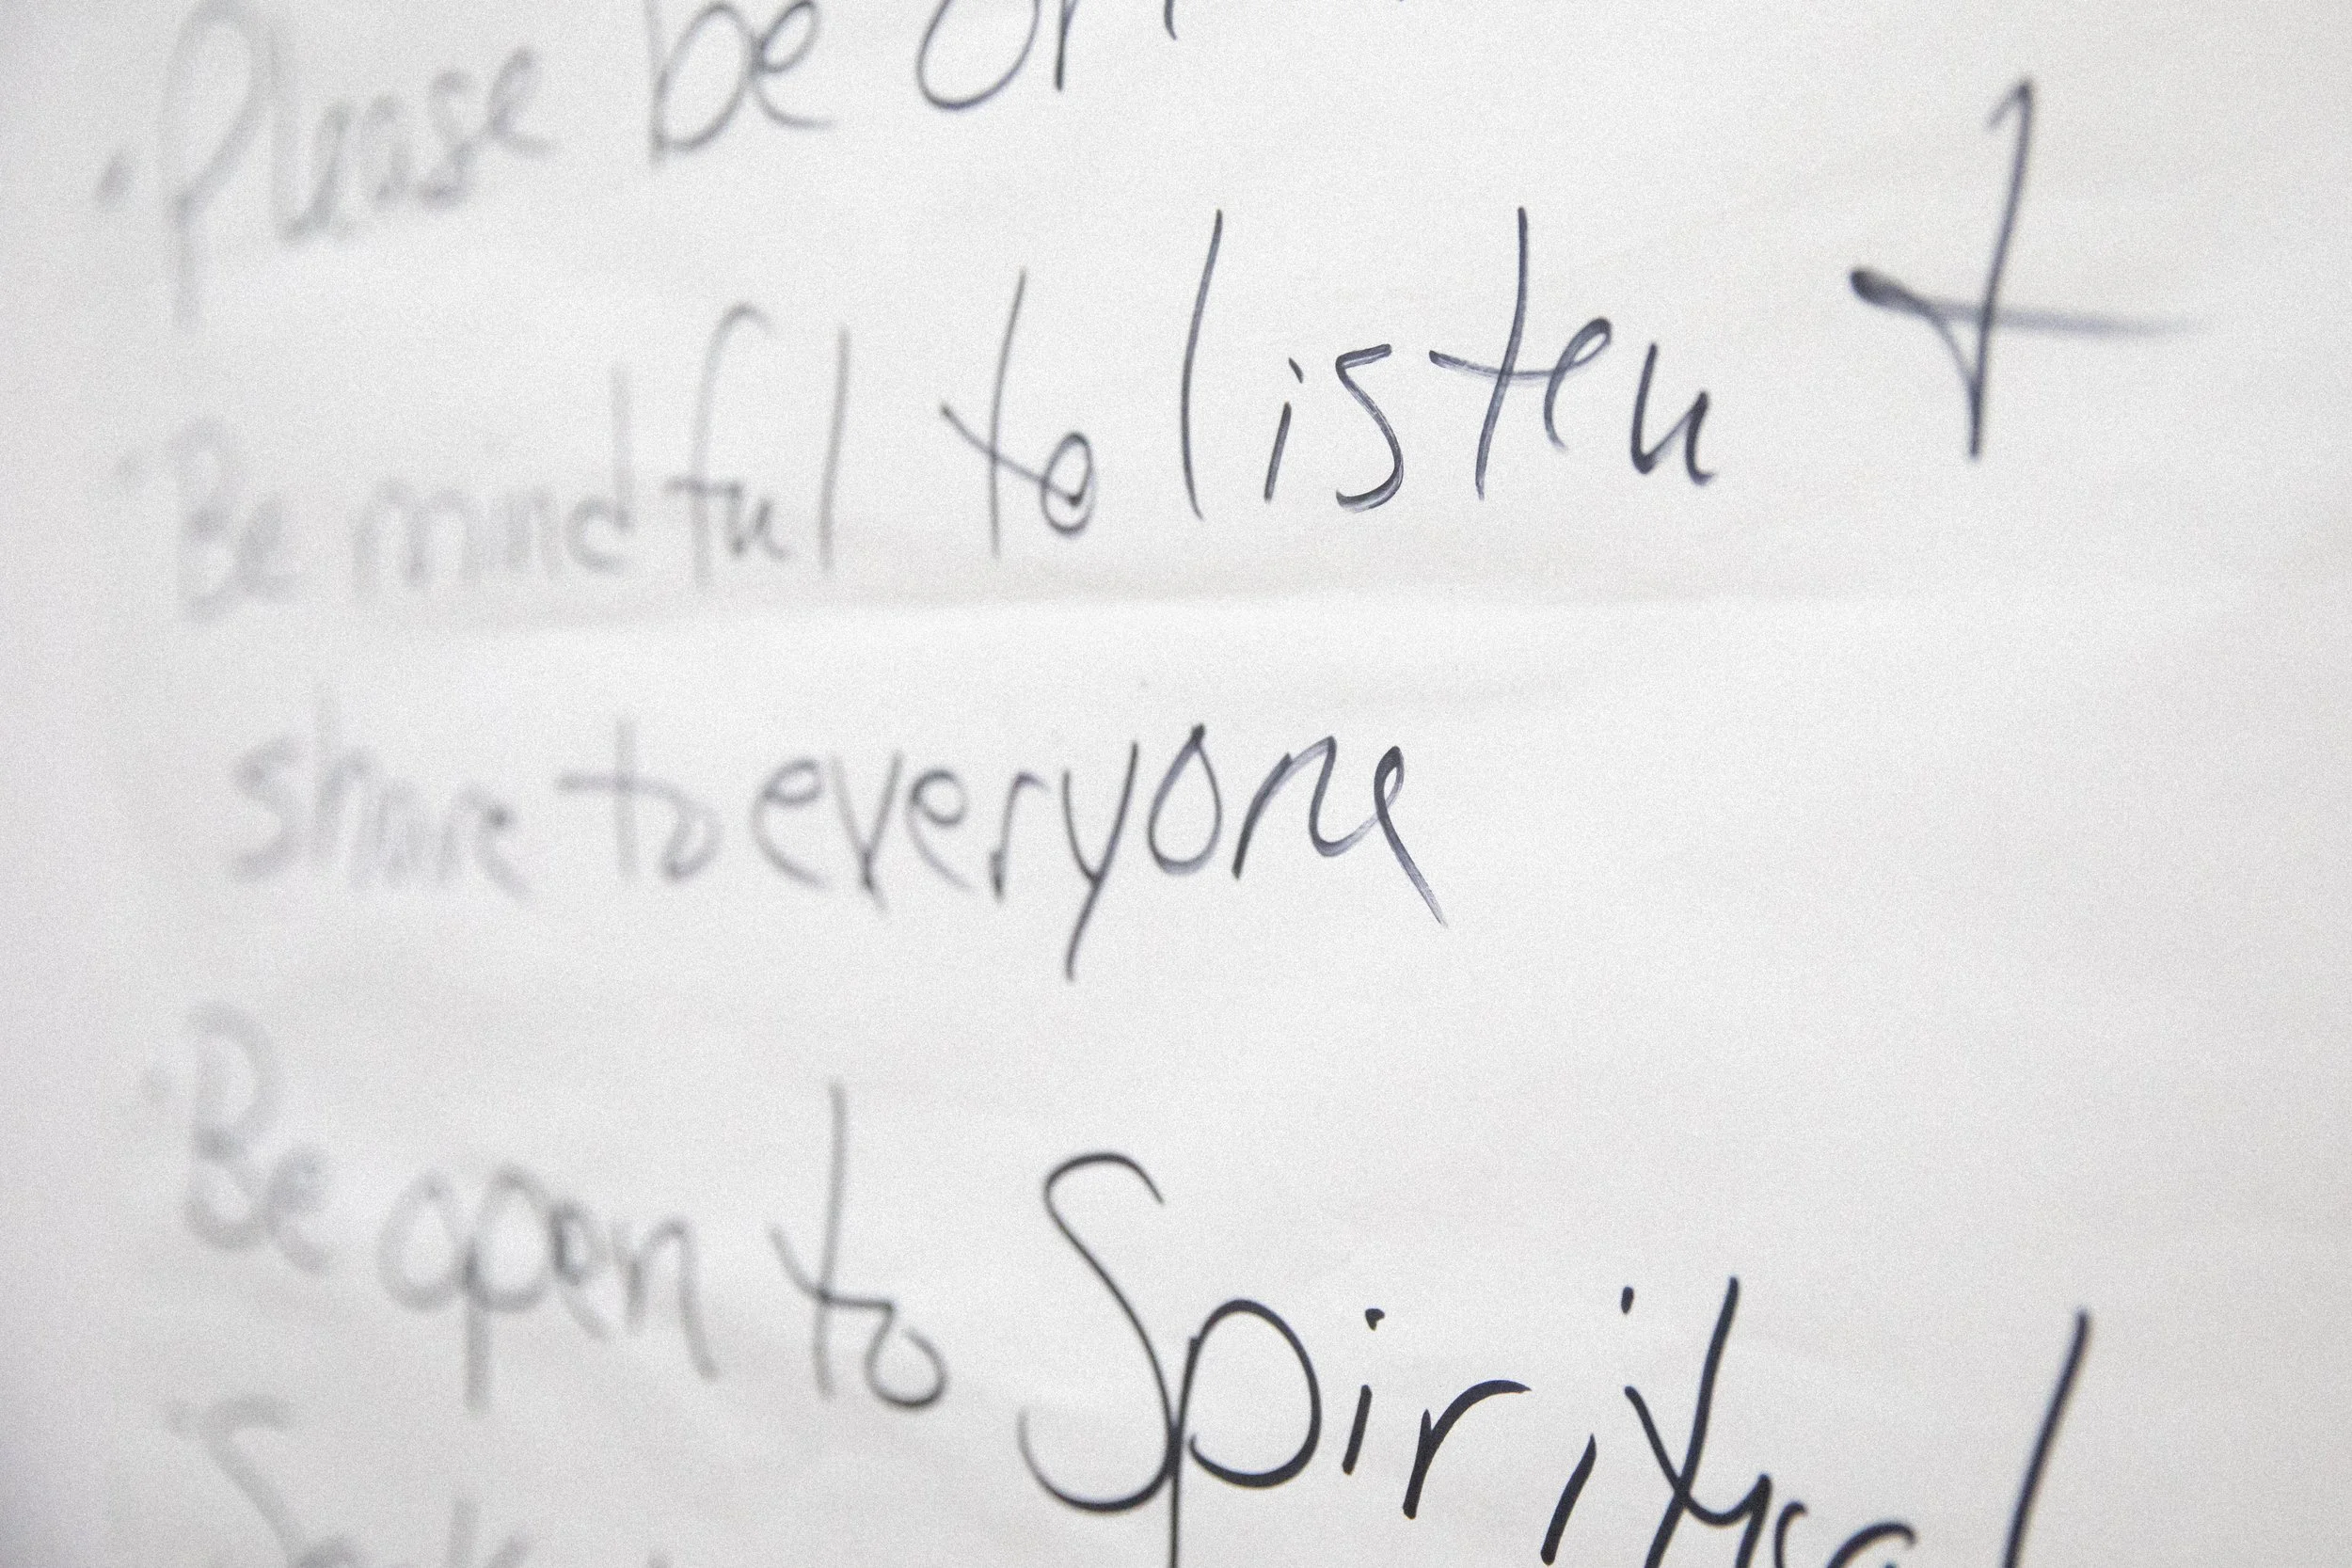 • Please be
• Be mindful to listen +
share to everyone
• Be open to Spiritual